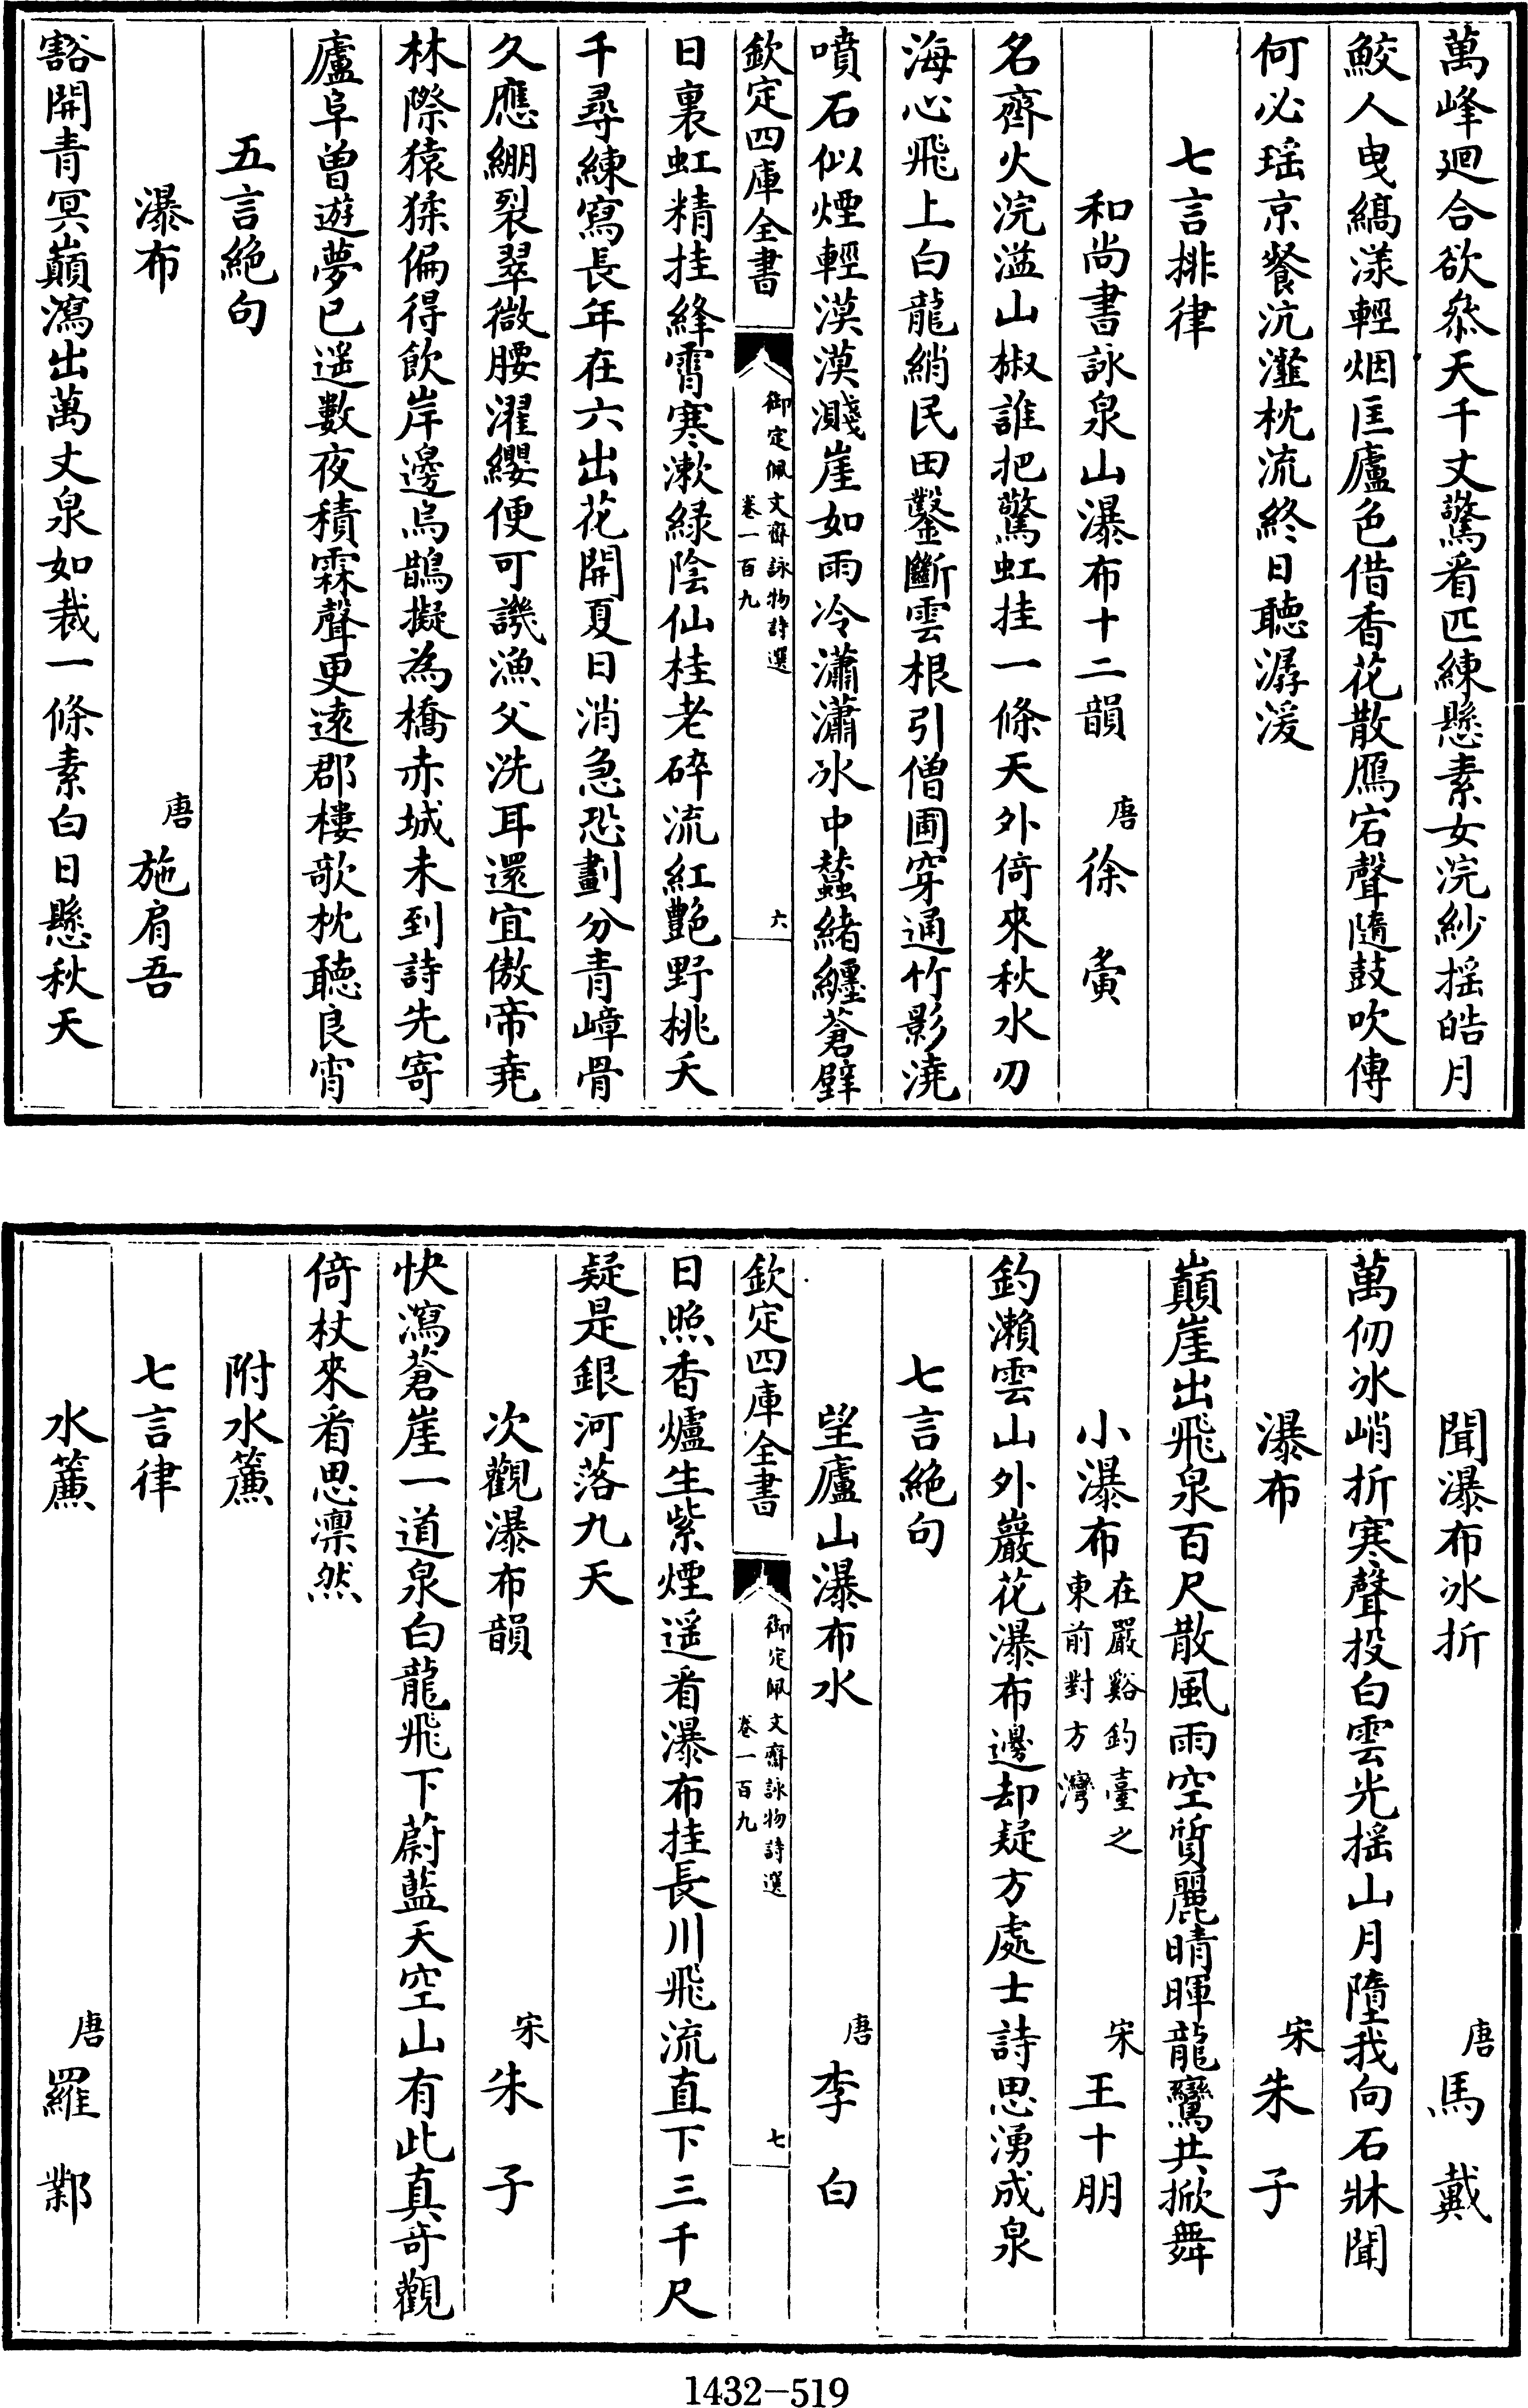 萬峰廻合欲叅天千丈驚看匹練懸素女浣紗摇皓月
鮫人曵縞漾輕烟匡廬色借香花散鴈宕聲隨鼓吹傳
何必瑶京餐沆瀣枕流終日聽潺湲
七言排律
和尚書詠泉山瀑布十二韻 唐 徐 夤
名齊火浣溢山椒誰把驚虹挂一條天外倚來秋水刃
海心飛上白龍綃民田鑿斷雲根引僧圃穿通竹影澆
噴石似煙輕漠漠濺崖如雨冷瀟瀟水中蠶緒纏蒼壁
欽定四庫全書 御定佩文齋詠物詩選 卷一百九 六
日裏虹精挂絳霄寒漱綠陰仙桂老碎流紅艷野桃夭
千尋練寫長年在六出花開夏日消急恐劃分青嶂骨
久應繃裂翠微腰濯纓便可譏漁父洗耳還宜傲帝堯
林際猿猱偏得飲岸邊烏鵲擬為橋赤城未到詩先寄
廬阜曾遊夢已遥數夜積霖聲更遠郡樓歌枕聽良宵
五言絶句
瀑布 唐 施肩吾
豁開青冥巔瀉出萬丈泉如裁一條素白日懸秋天
聞瀑布冰折 唐 馬 戴
萬仞冰峭折寒聲投白雲光摇山月墮我向石牀聞
瀑布 宋 朱 子
巔崖出飛泉百尺散風雨空質麗晴暉龍鸞共掀舞
小瀑布 在嚴谿釣臺之東前對方灣 宋 王十朋
釣瀨雲山外巖花瀑布邊却疑方處士詩思湧成泉
七言絶句
望廬山瀑布水 唐 李 白
欽定四庫全書 御定佩文齋詠物詩選 卷一百九 七
日照香爐生紫煙遥看瀑布挂長川飛流直下三千尺
疑是銀河落九天
次觀瀑布韻 宋 朱 子
快瀉蒼崖一道泉白龍飛下蔚藍天空山有此真奇觀
倚杖來看思凛然
附水簾
七言律
水簾 唐 羅 鄴
1432-519